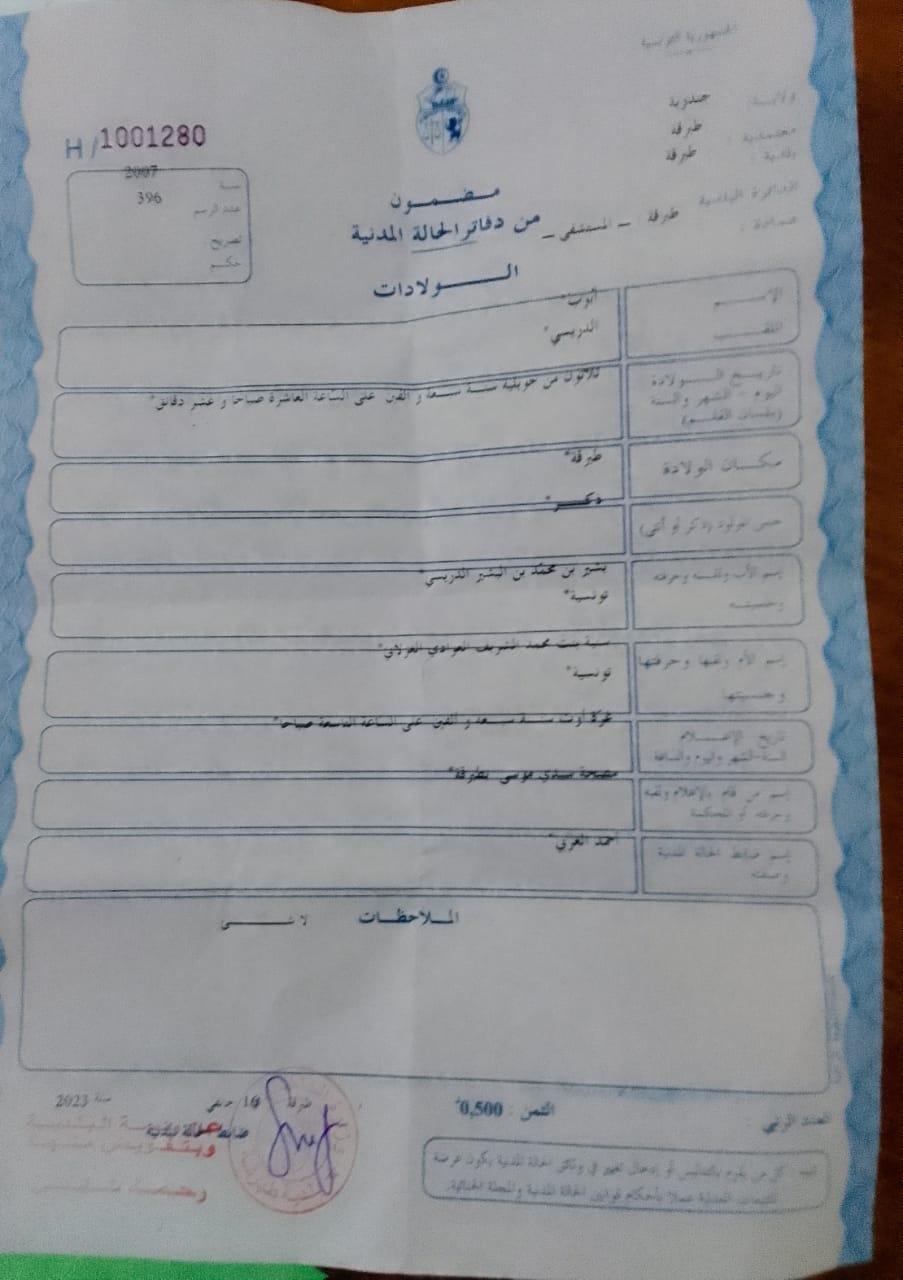 الجمهورية التونسية
ولاية : جندوبة
معتمدية : طبرقة
بلدية : طبرقة
الدائرة البلدية
عمادة : طبرقة _ المستشفى _
H/1001280
سنة 2007
عدد الرسم 396
تصريح
حكم
مضمون
من دفاتر الحالة المدنية
الولادات
الإسم
اللقب
أيوب*
الدريسي*
تاريخ الولادة
اليوم - الشهر والسنة
(بلسان القلم)
ثلاثون من جويلية سنة سبعة و ألفين على الساعة العاشرة صباحا و عشر دقائق*
مكان الولادة
طبرقة*
جنس المولود (ذكر أو أنثى)
ذكر*
إسم الأب ولقبه وحرفته
وجنسيته
بشير بن محمد بن البشير الدريسي*
تونسية*
إسم الأم ولقبها وحرفتها
وجنسيتها
بنت محمد الشريف
تونسية*
تاريخ الإعلام
السنة-الشهر واليوم والساعة
غرة أوت سنة سبعة و ألفين على الساعة التاسعة صباحا*
إسم من قام بالإعلام ولقبه
وحرفته أو المحكمة
مصحة سيدي موسى بطبرقة*
إسم ضابط الحالة المدنية
وصفته
أحمد
الملاحظات
لا شيء
طبرقة 16 جانفي سنة 2023
ضابط الحالة المدنية
وبتفويض منها
الثمن : 0,500د
العدد الرتبي :
تنبيه : كل من يقوم بالتدليس أو إدخال تغيير في وثائق الحالة المدنية يكون عرضة
للتتبعات العدلية عملا بأحكام قوانين الحالة المدنية والمجلة الجنائية.